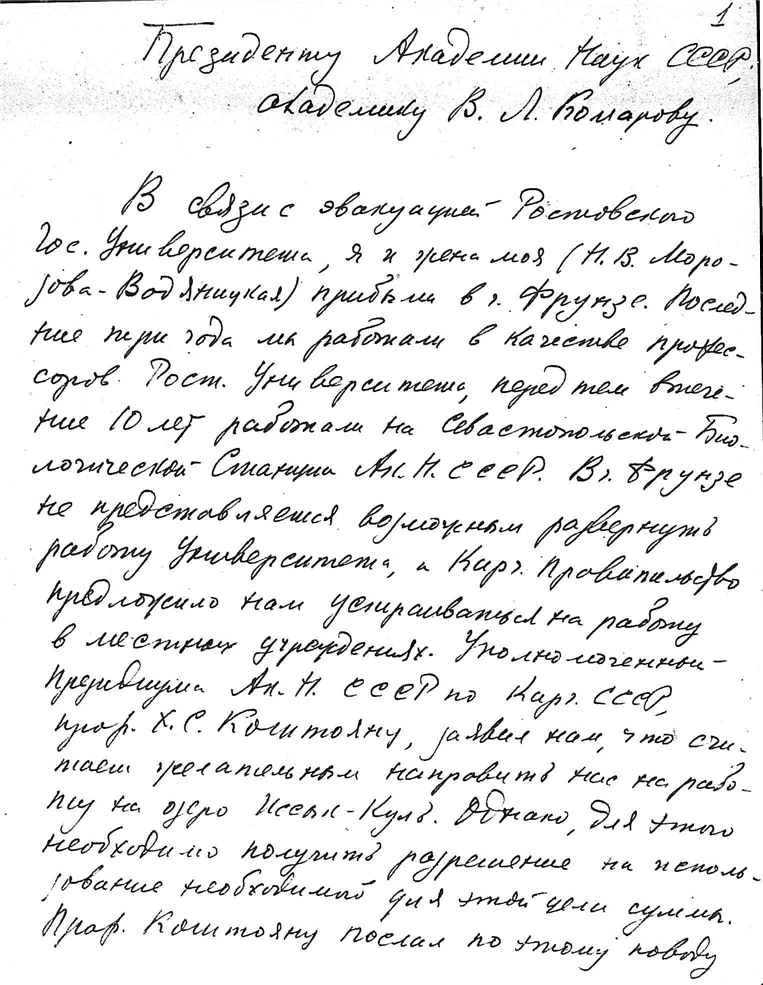 1
Президенту Академии Наук СССР,
академику В. Л. Комарову.
В связи с эвакуацией Ростовского
Гос. Университета, я и жена моя (Н. В. Моро-
зова-Водяницкая) прибыли в г. Фрунзе. Послед-
ние три года мы работали в качестве профес-
соров Рост. Университета, перед тем в тече-
ние 10 лет работали на Севастопольской Био-
логической Станции Ак. Н. СССР. В г. Фрунзе
не представляется возможным развернуть
работу Университета, а Кирг. Правительство
предложило нам устраиваться на работу
в местных учреждениях. Уполномоченный
Президиума Ак. Н. СССР по Кирг. ССР,
проф. Х. С. Коштоянц, заявил нам, что счи-
тает желательным направить нас на рабо-
ту на озеро Иссык-Куль. Однако, для этого
необходимо получить разрешение на исполь-
зование необходимой для этой цели суммы.
Проф. Коштоянц послал по этому поводу